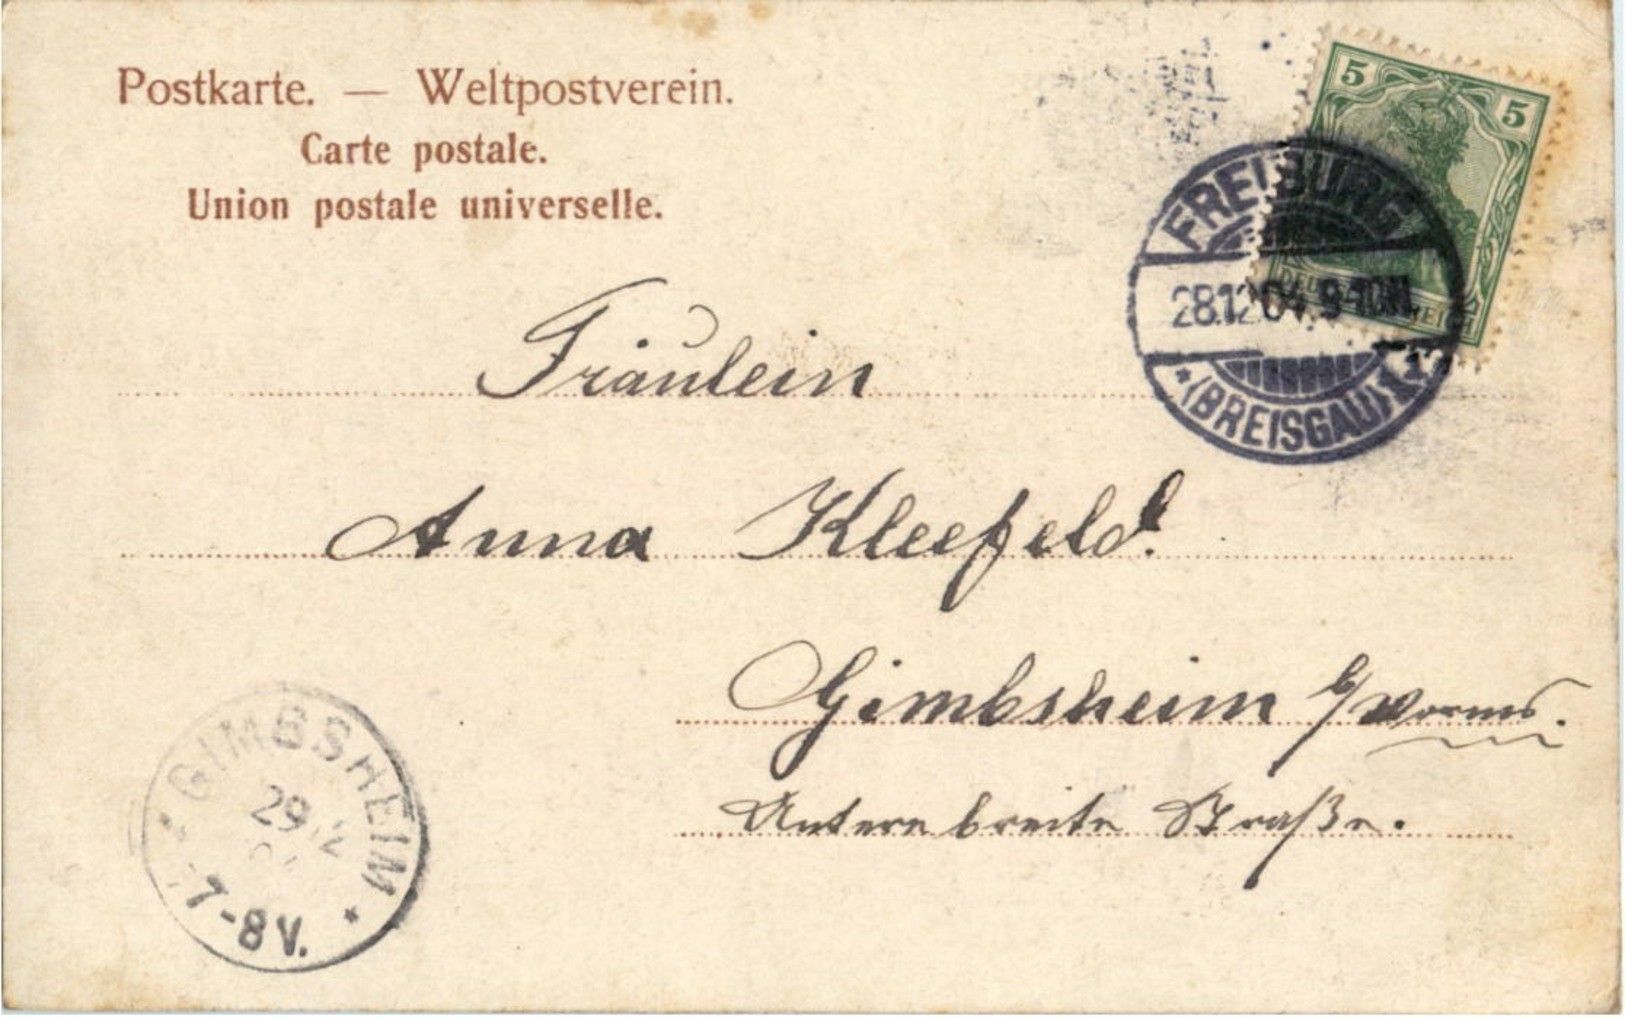 Postkarte. — Weltpostverein.
Carte postale.
Union postale universelle.
5 5
DEUTSCHES REICH
FREIBURG
28.12.04. 9-10N.
* (BREISGAU) 1 *
Fräulein
Anna Kleefeld.
Gimbsheim b/Worms.
Untere breite Straße.
GIMBSHEIM
29 12
7-8 V.
*